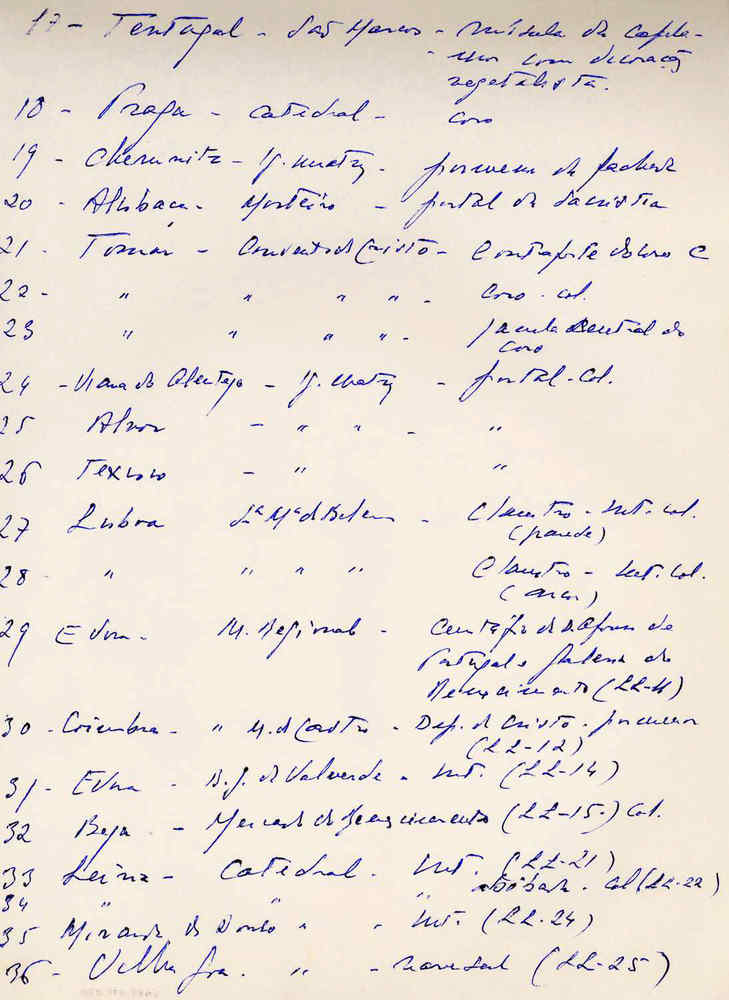 17 - Tentugal - São Marcos - mísula da capela-
mor com decoração
vegetalista.
18 - Praga - catedral - coro
19 - Chemnitz - Ig. matriz - pormenor da fachada
20 - Alcobaça - Mosteiro - portal da sacristia
21 - Tomar - Convento de Cristo - Contraforte do coro C
22 - " " " " - coro - col.
23 " " " " - janela central do
coro
24 - Viana do Alentejo - Ig. matriz - portal - col.
25 Alvor - " " - "
26 - "  "
27 Lisboa Stª Mª de Belem - Claustro - int. col.
(parede)
28 - " " " " Claustro - int. col.
29 Evora - M. Regional - Cenotáfio de D. Afonso de
Portugal e do
Renascimento (LL-11)
30 - Coimbra - " M. de Castro - Dep. de Cristo - pormenor
(LL-12)
31 - Evora - de Valverde - int. (LL-14)
32 Beja - do Renascimento (LL-15) col.
33 Leiria - Catedral - int. (LL-21)
34 " " " abóbada - col (LL-22)
35 Miranda do Douro " " int. (LL-24)
36 - " - (LL-25)